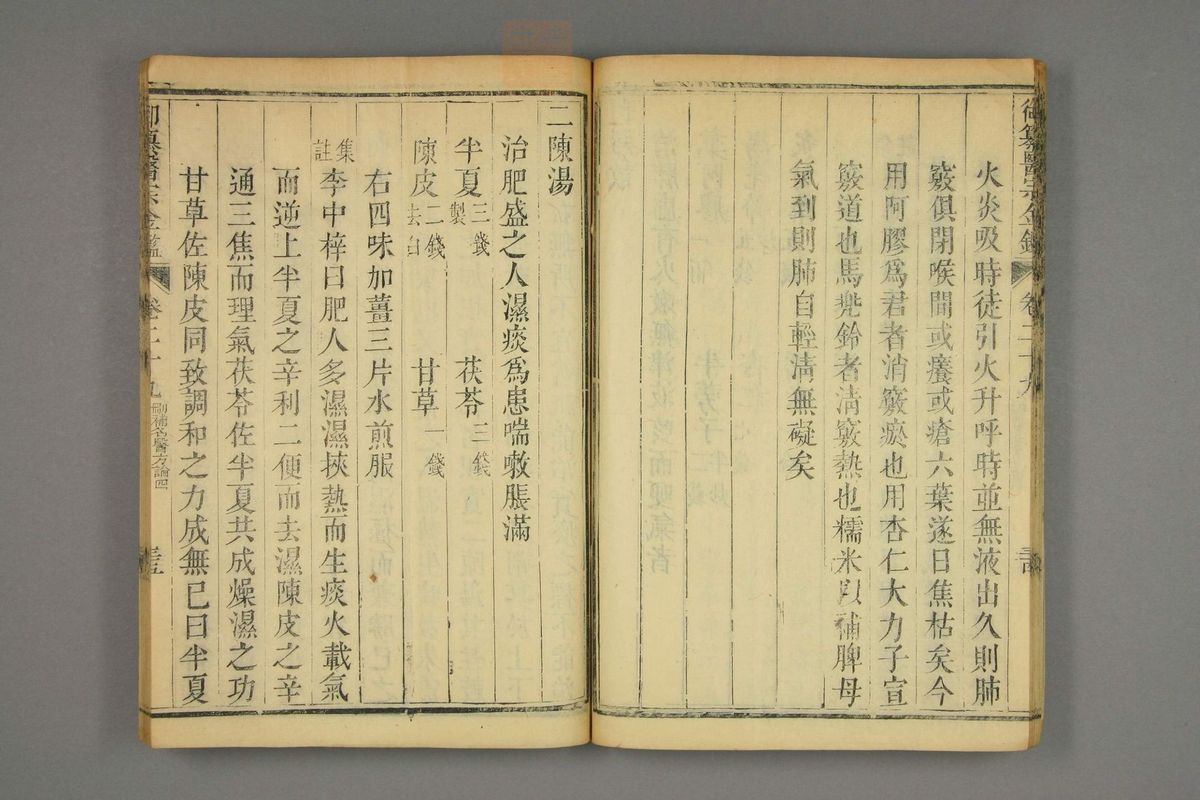 御纂醫宗金鑑 卷二十九
火炎吸時徒引火升呼時並無液出久則肺
竅俱閉喉間或癢或瘡六葉遂日焦枯矣今
用阿膠爲君者消竅瘀也用杏仁大力子宣
竅道也馬兠鈴者淸竅熱也糯米以補脾母
氣到則肺自輕淸無礙矣
二陳湯
治肥盛之人濕痰爲患喘嗽脹滿
半夏製三錢 茯苓三錢
陳皮去白二錢 甘草一錢
右四味加薑三片水煎服
集註李中梓曰肥人多濕濕挾熱而生痰火載氣
而逆上半夏之辛利二便而去濕陳皮之辛
通三焦而理氣茯苓佐半夏共成燥濕之功
甘草佐陳皮同致調和之力成無已曰半夏
御纂醫宗金鑑 卷二十九 刪補名醫方論四